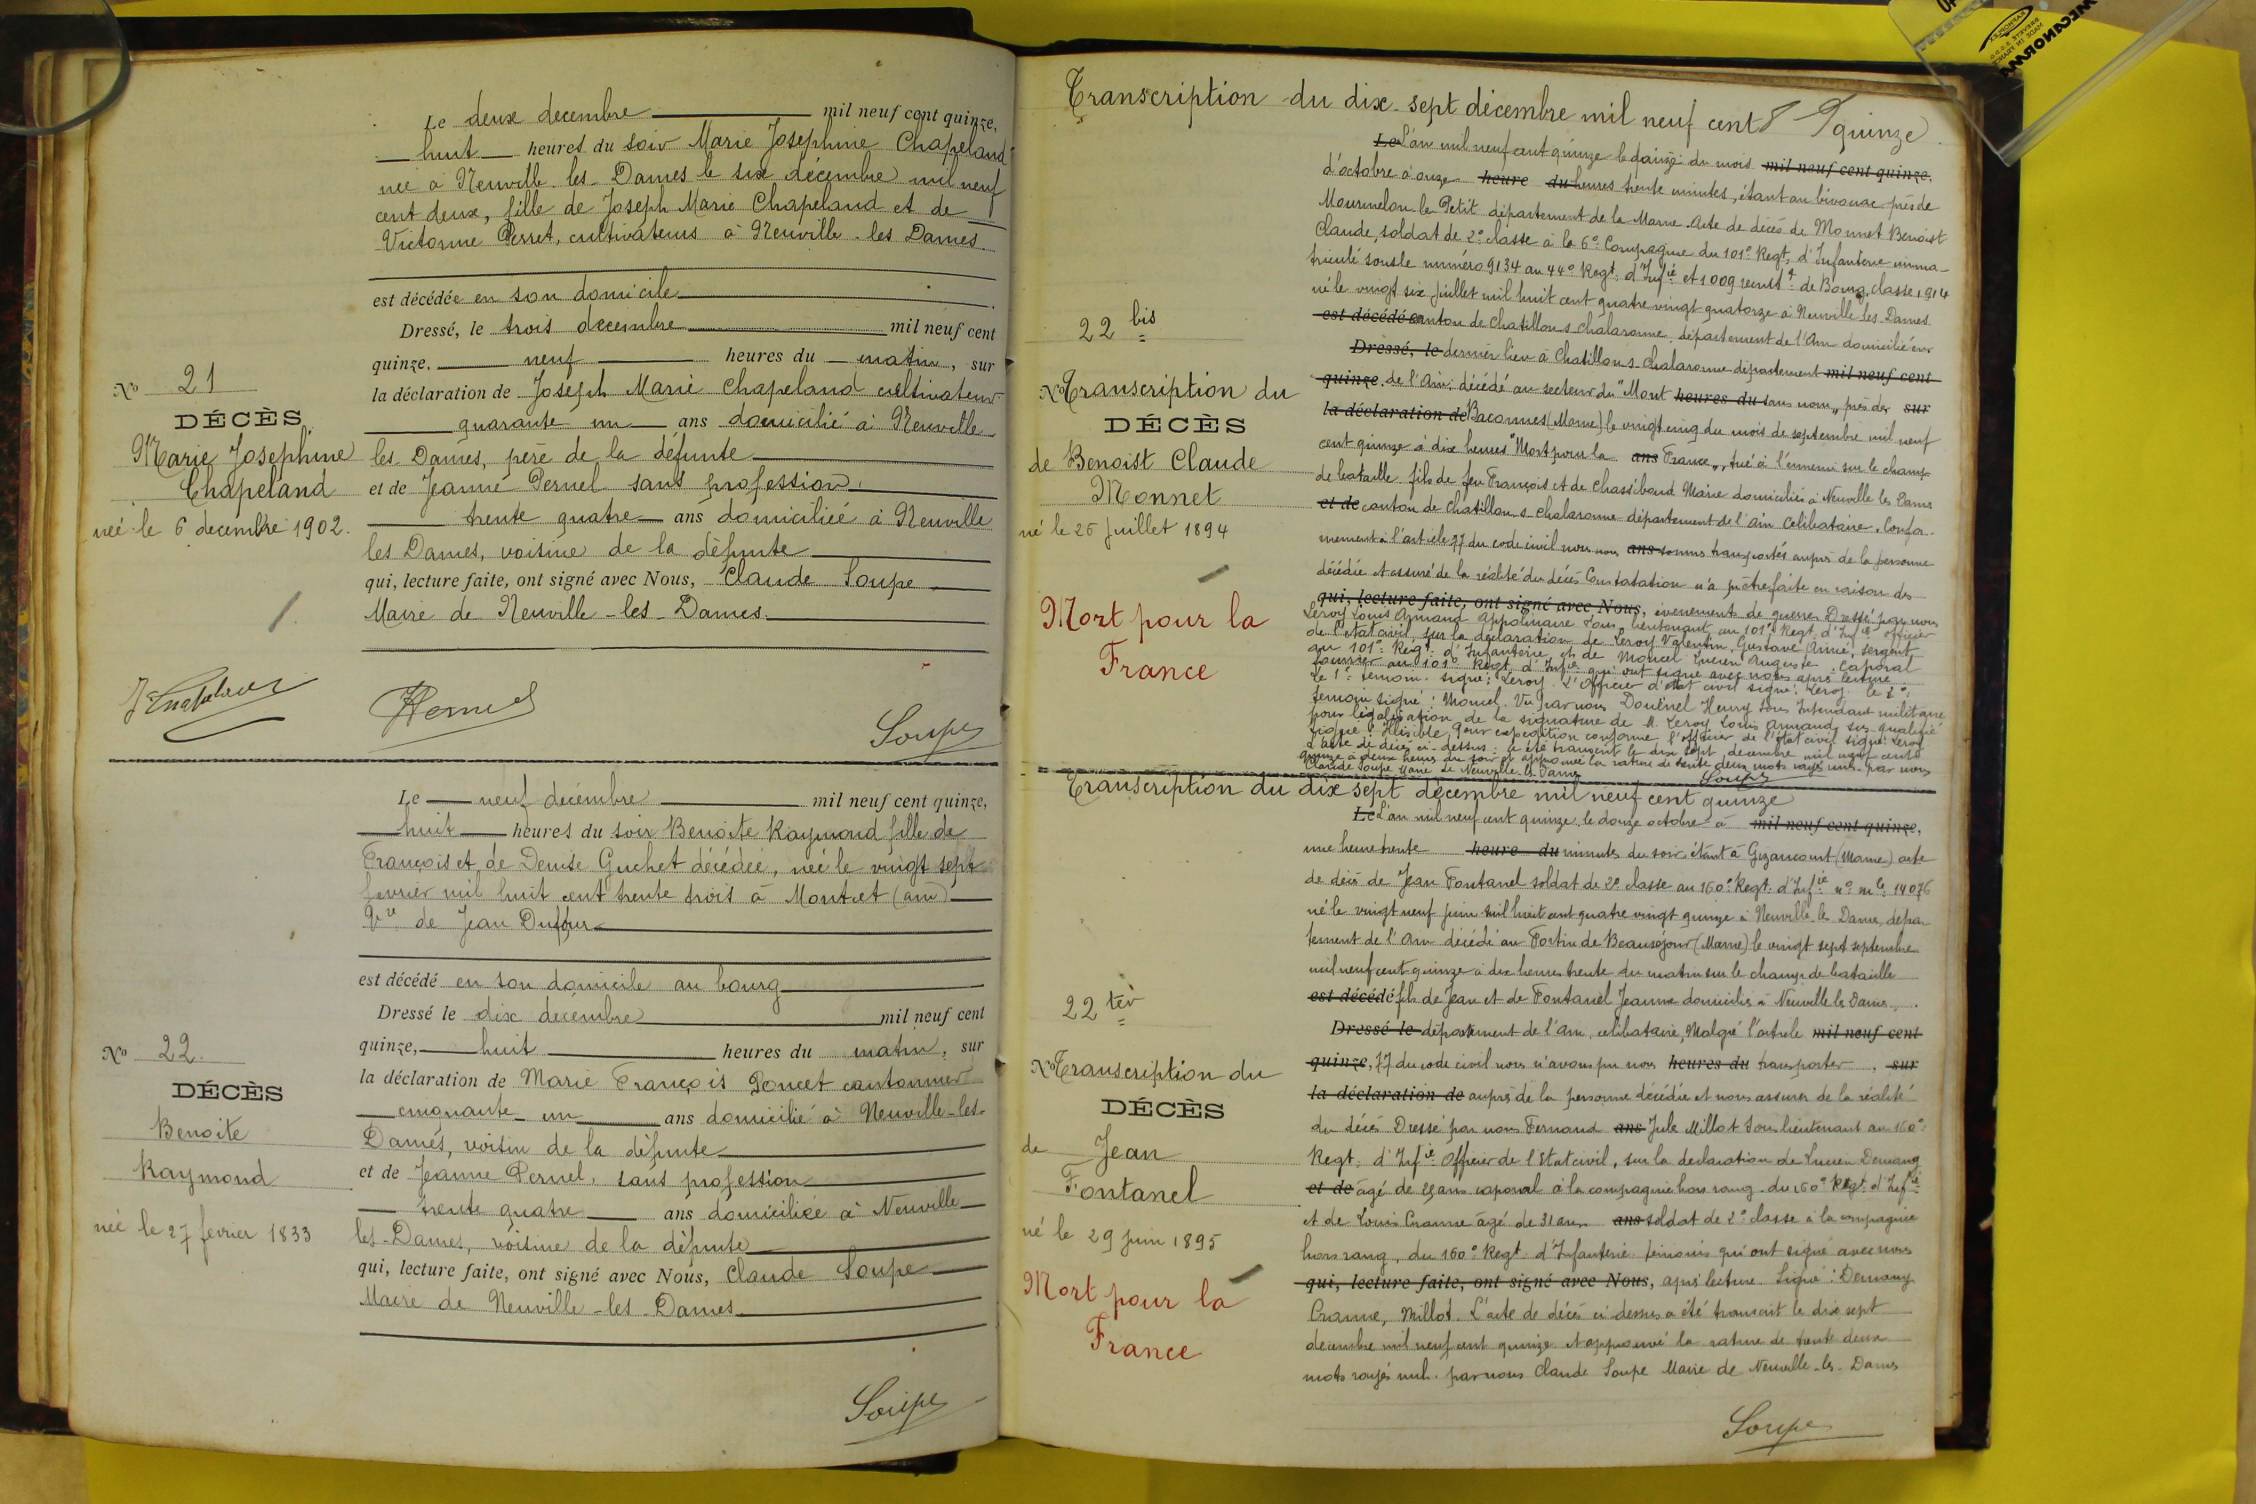 Le deux decembre mil neuf cent quinze,
huit heures du soir Marie Josephine Chapeland
née à Neuville les Dames le six décembre mil neuf
cent deux, fille de Joseph Marie Chapeland et de
Victorine Perret, cultivateurs à Neuville les Dames
est décédée en son domicile
Dressé, le trois decembre mil neuf cent
quinze, neuf heures du matin, sur
la déclaration de Joseph Marie Chapeland cultivateur
quarante un ans domicilié à Neuville
les Dames, père de la défunte
et de Jeanne Pernel sans profession
trente quatre ans domiciliée à Neuville
les Dames, voisine de la défunte
qui, lecture faite, ont signé avec Nous, Claude Soupe
Maire de Neuville-les-Dames.
No 21
DÉCÈS
Marie Josephine
Chapeland
née le 6 decembre 1902.
Soupe
Le neuf décembre mil neuf cent quinze,
huit heures du soir Benoite Raymond fille de
François et de Denise Guchet décédée, née le vingt sept
fevrier mil huit cent trente trois à Montcet (ain)
Vve de Jean Dufour
est décédé en son domicile au bourg
Dressé le dix décembre mil neuf cent
quinze, huit heures du matin, sur
la déclaration de Marie François Poncet cantonnier
cinquante un ans domicilié à Neuville-les-
Dames, voisin de la défunte
et de Jeanne Pernel, sans profession
trente quatre ans domiciliée à Neuville
les-Dames, voisine de la défunte
qui, lecture faite, ont signé avec Nous, Claude Soupe
Maire de Neuville-les-Dames
No 22
DÉCÈS
Benoite
Raymond
née le 27 fevrier 1833
Soupe
Transcription du dix sept décembre mil neuf cent quinze
Le L'an mil neuf cent quinze le du mois mil neuf cent quinze,
d'octobre à onze heure du heures trente minutes, étant au bivouac près de
Mourmelon le Petit département de la Marne. Acte de décès de Monnet Benoist
Claude, soldat de 2e classe à la 6e Compagnie du 101e Regt. d'Infanterie imma-
triculé sous le numéro 9134 au 44e Regt. d'Infie et 1009 recrutt de Bourg, classe 1914
né le vingt six juillet mil huit cent quatre vingt quatorze à Neuville les Dames
est décédé canton de Chatillon s Chalaronne département de l'Ain domicilié en
Dressé, le dernier lieu à Chatillon s Chalaronne département mil neuf cent
quinze, de l'Ain; décédé au secteur du "Mont heures du sans nom" près de sur
la déclaration de Baconnes (Marne) le vingt cinq du mois de septembre mil neuf
cent quinze à dix heures "Mort pour la ans France", tué à l'ennemi sur le champ
de bataille fils de feu François et de Chassibaud Marie domiciliés à Neuville les Dames
et de canton de Chatillon s Chalaronne département de l'Ain célibataire. Confor-
mement à l'article 77 du code civil nous nous ans sommes transportés auprès de la personne
décédée et assuré de la réalité du décès Constatation n'a pu être faite en raison des
qui, lecture faite, ont signé avec Nous, évenements de guerre Dressé par nous
Leroy Louis Armand Appolinaire Sous lieutenant au 101e Regt. d'Infie officier
de l'état civil, sur la déclaration de Leroy Valentin, Gustave Aimé, sergent
au 101e Regt. d'Infanterie, et de Moucel Lucien Auguste, Caporal
fourrier au 101e Regt. d'Infie qui ont signé avec nous après lecture.
Le 1er témoin signé: Leroy. L'Officier d'état civil signé: Leroy. le 2e
témoin signé: Moucel. Vu par nous Douënel Henry Sous Intendant militaire
pour légalisation de la signature de M. Leroy Louis Armand, sus-qualifié
signé: Illisible. Pour expedition conforme l'officier de l'état civil signé: Leroy
L'acte de décès ci-dessus a été transcrit le dix sept décembre mil neuf cent
quinze à deux heures du soir et approuvé la rature de trente deux mots rayés nuls par nous
Claude Soupe Maire de Neuville-les-Dames
Soupe
22 bis
No Transcription du
DÉCÈS
de Benoist Claude
Monnet
né le 26 Juillet 1894
Mort pour la
France
Transcription du dix sept décembre mil neuf cent quinze
Le L'an mil neuf cent quinze le douze octobre à mil neuf cent quinze,
une heure trente heure du minutes du soir étant à Gizaucourt (Marne) acte
de décès de Jean Fontanel soldat de 2e classe au 160e Regt. d'Infie no mle 14076
né le vingt neuf juin mil huit cent quatre vingt quinze à Neuville les Dames, dépar
tement de l'Ain décédé au Fortin de Beauséjour (Marne) le vingt sept septembre
mil neuf cent quinze à dix heures trente du matin sur le champ de bataille
est décédé fils de Jean et de Fontanel Jeanne domiciliés à Neuville les Dames.
Dressé le département de l'Ain, celibataire, Malgré l'article mil neuf cent
quinze, 77 du code civil nous n'avons pu nous heures du transporter sur
la déclaration de auprès de la personne décédée et nous assurer de la réalité
du décès Dressé par nous Fernand ans Jule Millot Sous lieutenant au 160e
Regt. d'Infie Officier de l'Etat civil, sur la declaration de Lucien Demang
et de âgé de ans caporal à la compagnie hors rang du 160e Regt. d'Infie
et de Louis Cranne âgé de 31 ans ans soldat de 2e classe à la compagnie
hors rang, du 160e Regt d'Infanterie témoins qui ont signé avec nous
qui, lecture faite, ont signé avec Nous, après lecture. Signé: Demang
Cranne, Millot. L'acte de décès ci dessus a été transcrit le dix sept
decembre mil neuf cent quinze et approuvé la rature de trente deux
mots rayés nuls. par nous Claude Soupe Maire de Neuville-les-Dames
Soupe
22 ter
No Transcription du
DÉCÈS
de Jean
Fontanel
né le 29 juin 1895
Mort pour la
France
MECANORMA